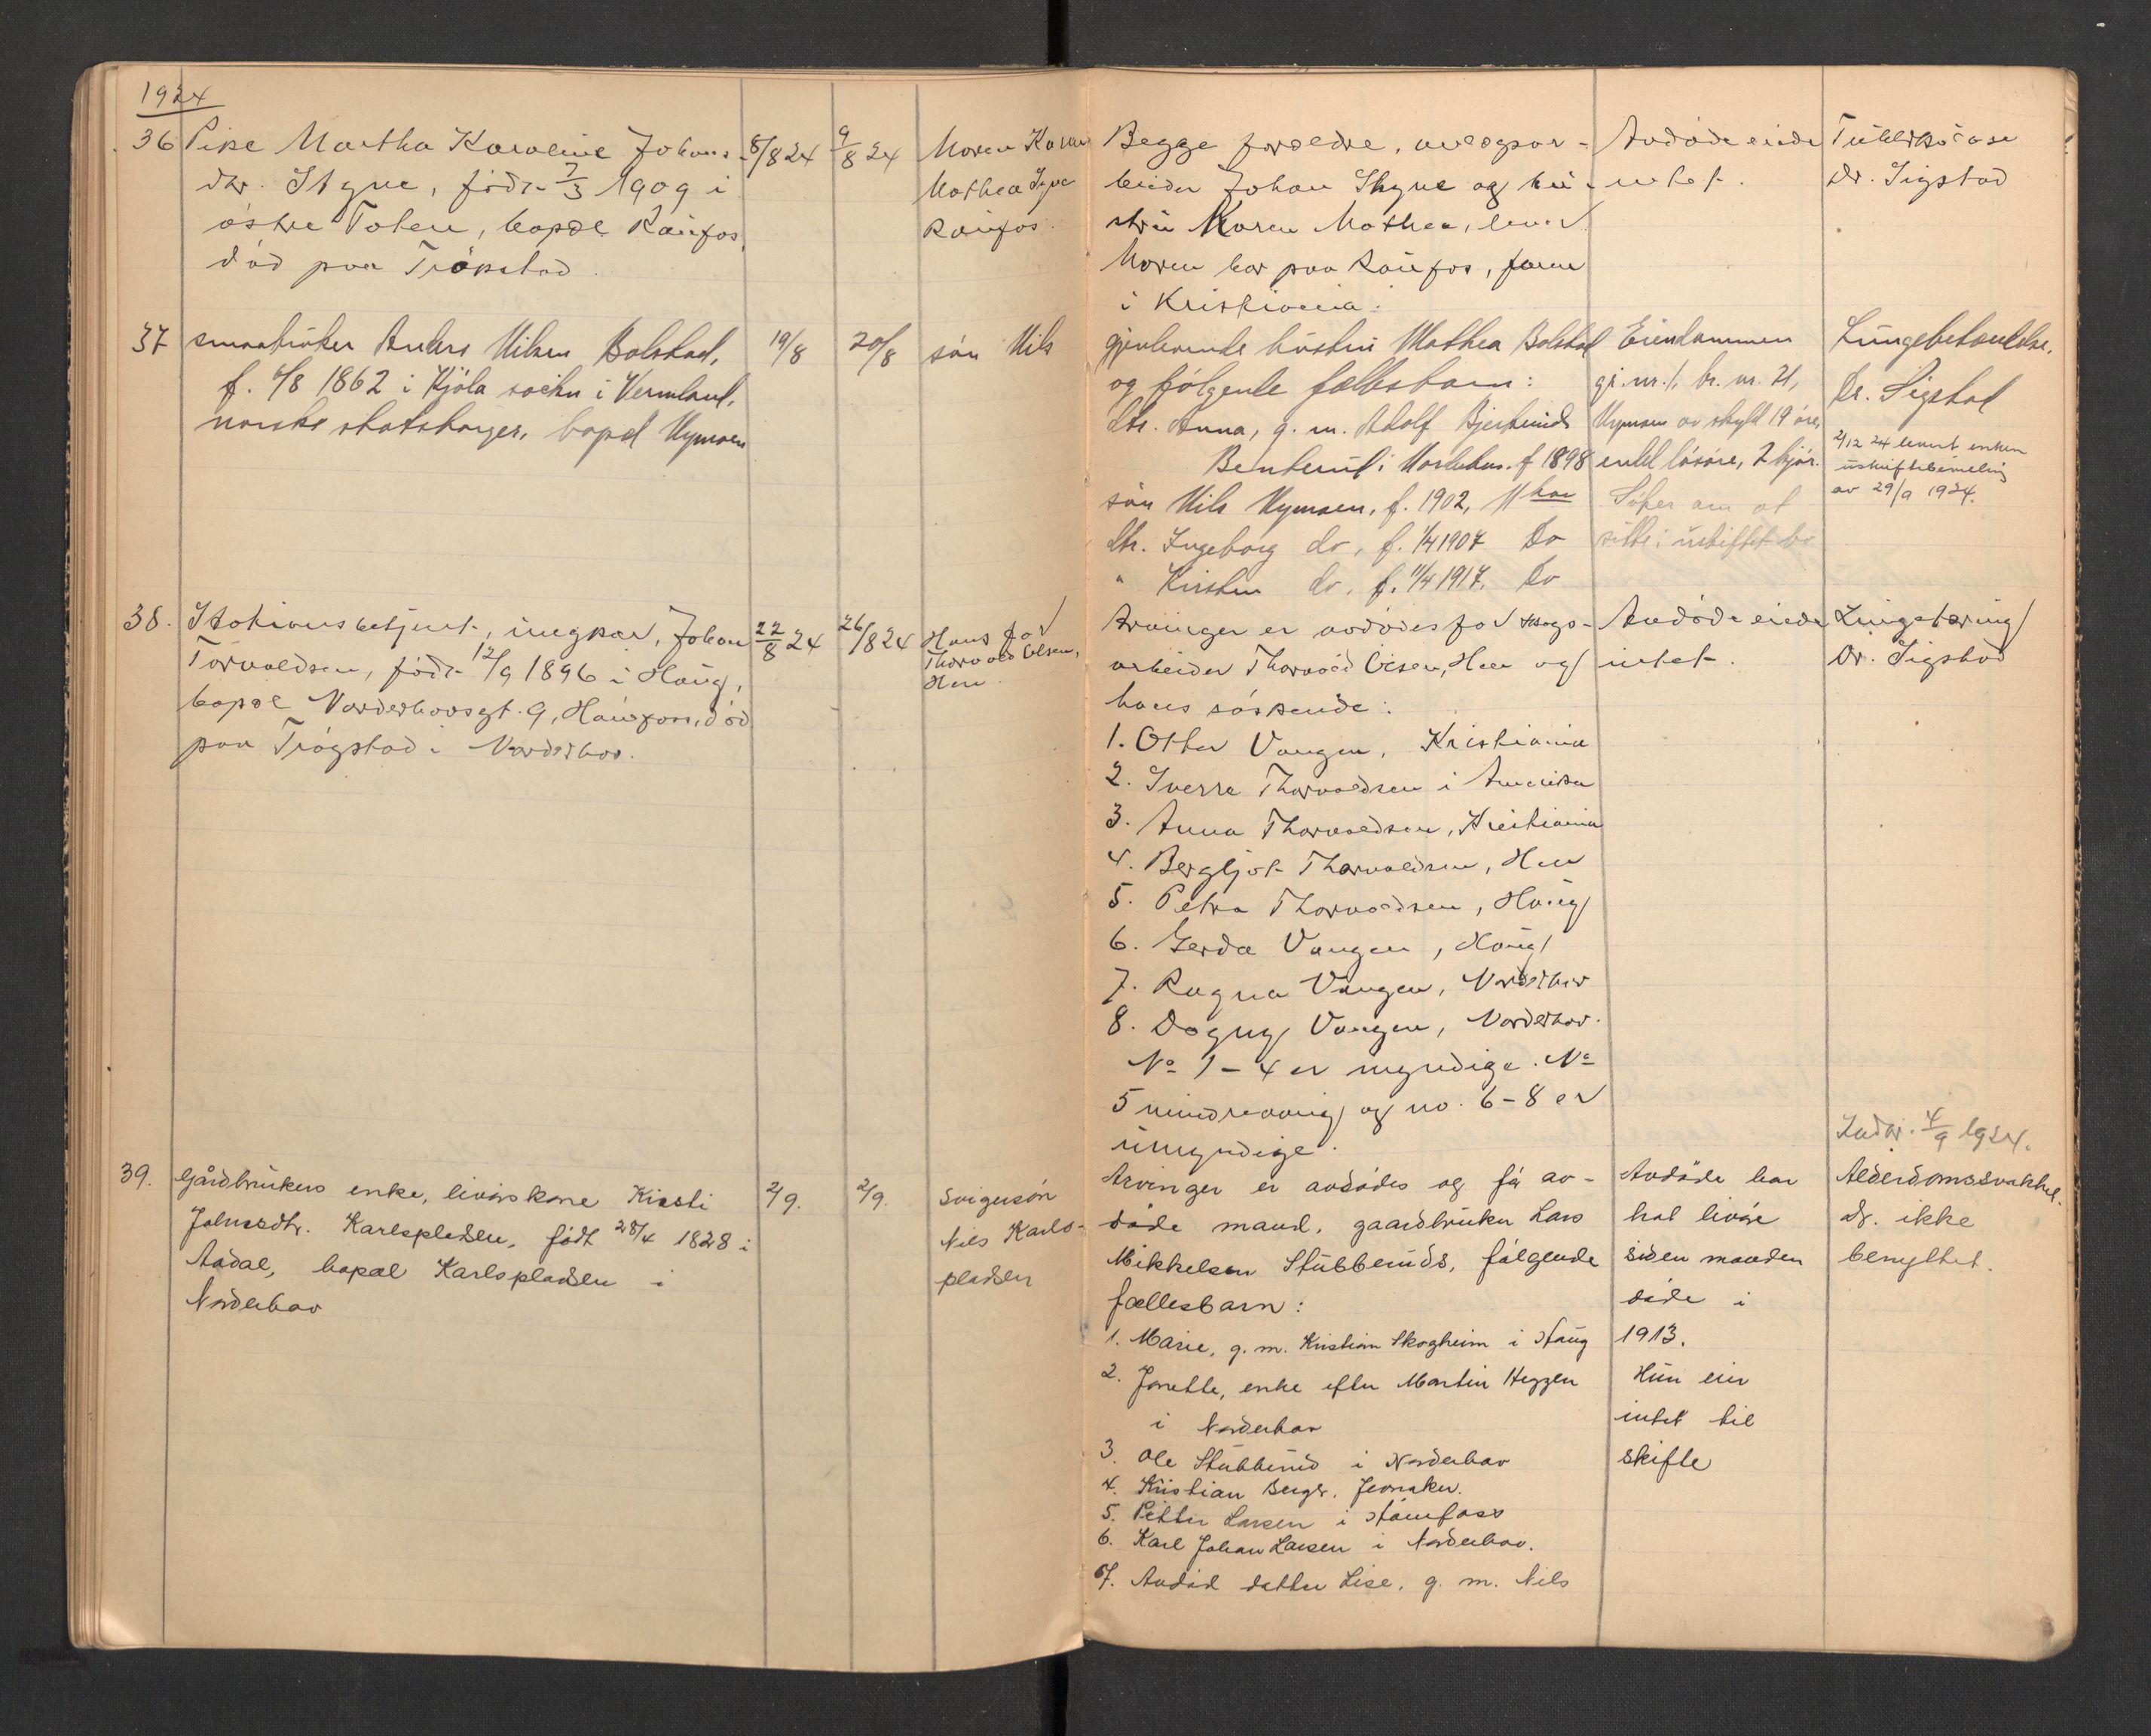 1924
36 Pike Martha Karoline Johans- 8/8 24 9/8 24 Moren Karen
dtr. Skyue, födt 7/3 1909 i Mathea
östre Toten, bopæl Raufos, Raufos.
död paa Trökstad.
Begge foreldre, anlægsar- Avdöde eiede
beider Johan Skyue og hu- intet.
stru Karen Mathea, lever. Dr. Sigstad
Moren bor paa Raufos, faren
i Kristiania.
37 smaabruker Anders Nilsen Bolstad, 19/8 20/8 sön Nils
f. 6/8 1862 i Kjöla sockn i Vermland,
norsk statsborger, bopæl Nymoen
gjenlevende hustru Mathea Bolstad Eiendommen Lungebetændelse.
og følgende fællesbarn: g.nr. 1, br. nr. 21, Dr. Sigstad
dtr. Anna, g. m. Adolf Nymoen av skyld 19 öre,
f. 1898 endel lösöre, 2 kjör. 2/12 24 levert enken
uskiftebevilling
av 29/9 1924.
sön Nils Nymoen, f. 1902, Söker om at
dtr. Ingeborg do, f. 1/4 1907 Do sitte i uskiftet bo
" Kirsten do, f. 11/4 1917. Do
38. Stationsbetjent, ungkar, Johan 22/8 24 26/8 24 Hans far
Torvaldsen, födt 12/9 1896 i Haug, Thorvald Olsen,
bopæl Norderhovsgt. 9, Hönefoss, död Hen.
paa Trögstad i Norderhov.
Arvinger er avdödes far skogs- Avdöde eiede Lungetæring
arbeider Thorvald Olsen, Hen og intet. Dr. Sigstad
hans söskende:
1. Otter Vangen, Kristiania
2. Sverre Thorvaldsen i Amerika
3. Anna Thorvaldsen, Kristiania
4. Bergljot Thorvaldsen, Hen
5. Petra Thorvaldsen, Haug
6. Gerda Vangen, Haug
7. Ragna Vangen, Norderhov
8. Dagny Vangen, Norderhov.
No 1 - 4 er myndige. No
5 mindreaarig og no. 6 - 8 er
umyndige.
Indb. 4/9 1924.
39. Gårdbrukers enke, livörskone Kirsti 2/9. 2/9. Svigersön
Johnsdtr. Karlspladsen, födt 28/4 1828 i Nils Karls-
Aadal, bopæl Karlspladsen i pladsen
Norderhov
Arvinger er avdödes og för av- Avdöde har Alderdomssvakhet.
döde mand, gaardbruker Lars hat livöre dr. ikke
Mikkelsen Stubberuds, fölgende siden manden benyttet.
fællesbarn: döde i
1. Marie, g. m. Kristian Skogheim i Haug 1913.
2. Jonette, enke efter Martin Heggen Hun eier
i Norderhov intet til
3. Ole Stubberud i Norderhov skifte
4. Kristian Berger. Jevnaker.
5. Petter Larsen i Hönefoss
6. Karl Johan Larsen i Norderhov.
7. Avdöd datter Lise, g. m. Nils